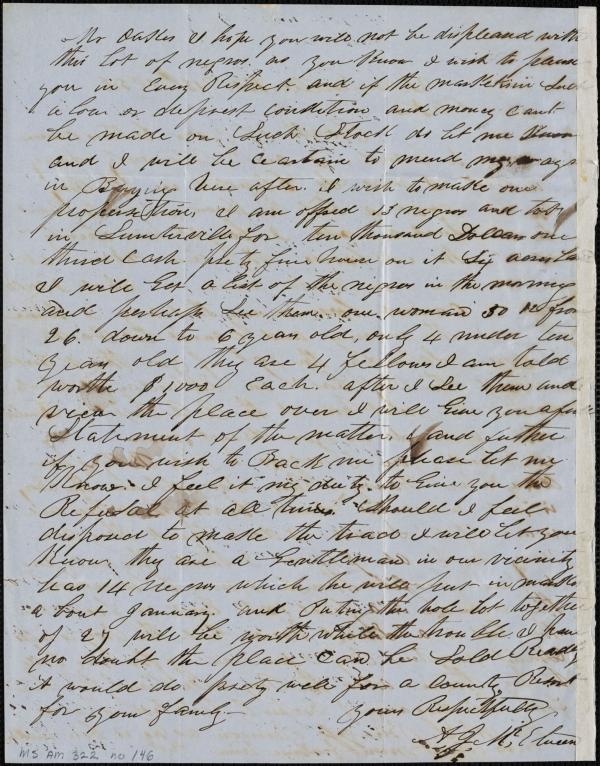 Mr Oakes I hope you will not be displeasd with
this lot of negros. as you Know I wish to please
you in Every Respect. and if the market is in Such
a low or deprest condition and money cant
be made on Such Stock do let me Know
and I will be certain to mend my ways
in Buying here after. I wish to make one
proposition, I am offred 13 negros and lot
in Sumterville for ten thousand Dollars one
third Cash prety fine house on it Six acres
I will Get a list of the negros in the morning
and perhaps See them. one woman 30 from
26 down to 6 years old, only 4 under ten
years old they are 4 fellows I am told
worth $1000 Each. after I See them and
view the place over I will Give you a full
Statement of the matter, and further
if you wish to Back me please let me
Know. I feel it my duty to Give you the
Refusal at all times. Should I feel
disposed to make the trad I will let you
Know they are a Gentleman in our vicinity
has 14 negros which he will put in market
a bout January and Puting the hole lot together
of 27 will be worth while the trouble I have
no doubt the place can be Sold Readily
it would do prety well for a county Resort
for your family.
yours Respectfully
A. J. McElveen
MS Am 322 no 146